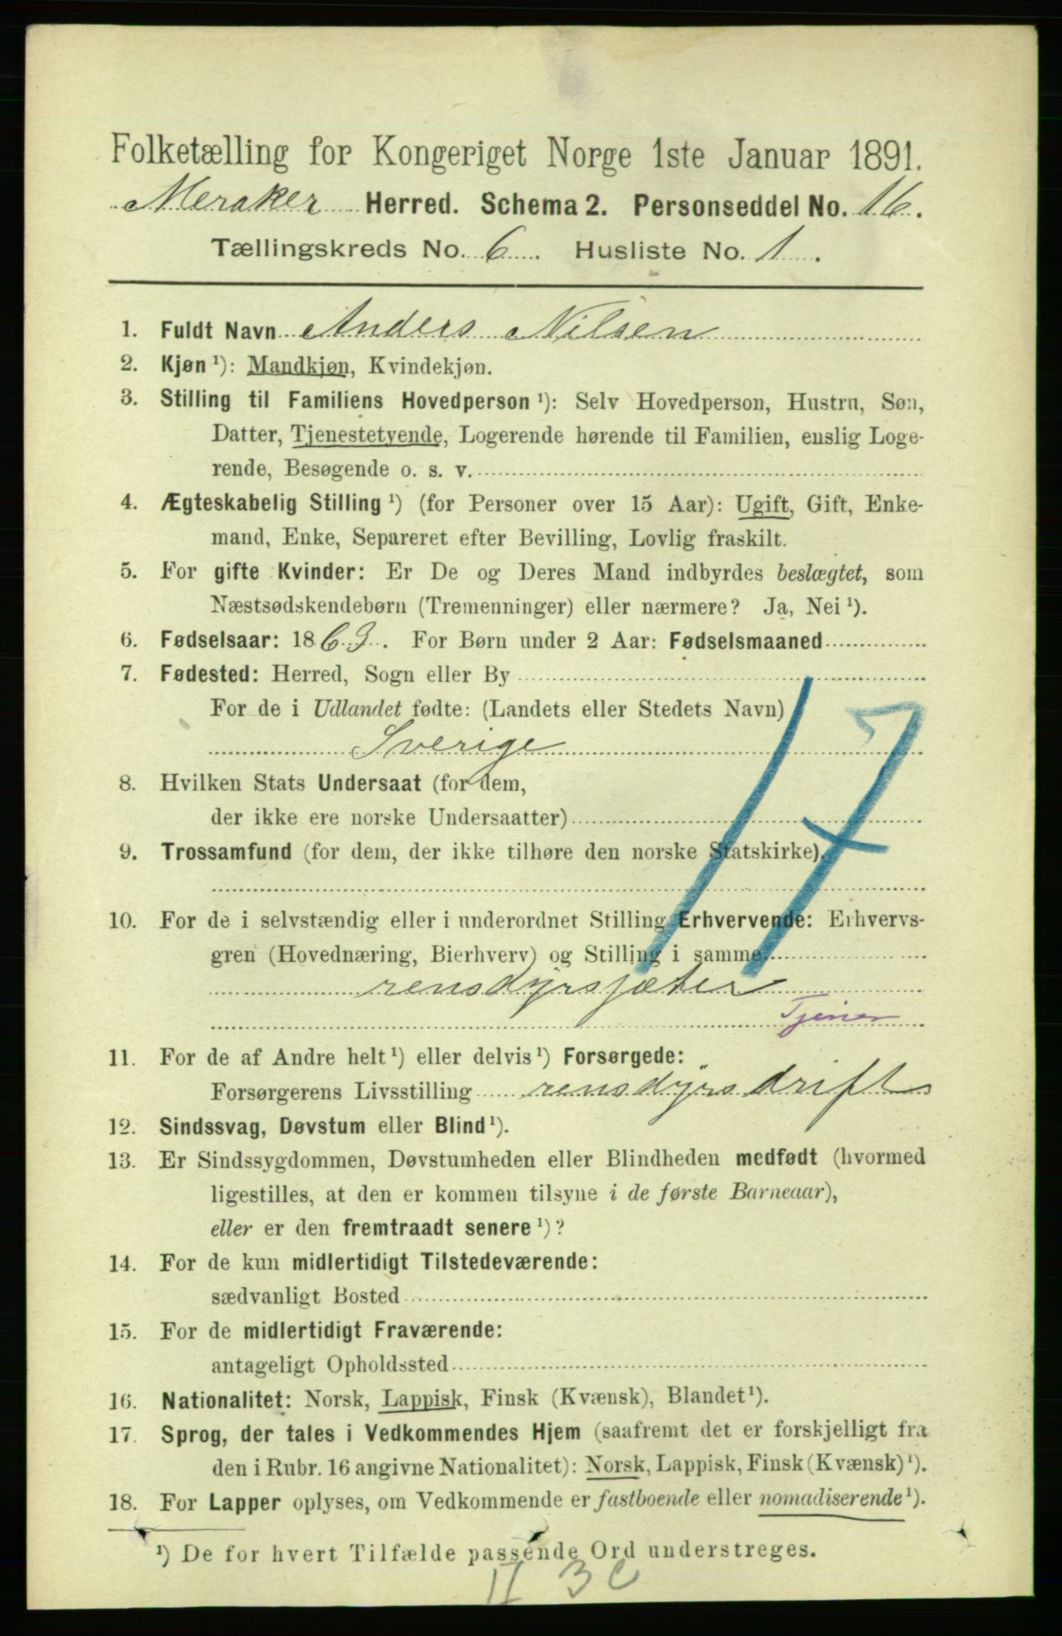 Folketælling for Kongeriget Norge 1ste Januar 1891.
Meraker Herred. Schema 2. Personseddel No. 16.
Tællingskreds No. 6. Husliste No. 1.
1. Fuldt Navn Anders Nilsen
2. Kjøn ¹): Mandkjøn, Kvindekjøn.
3. Stilling til Familiens Hovedperson ¹): Selv Hovedperson, Hustru, Søn,
Datter, Tjenestetyende, Logerende hørende til Familien, enslig Loge-
rende, Besøgende o. s. v.
4. Ægteskabelig Stilling ¹) (for Personer over 15 Aar): Ugift, Gift, Enke-
mand, Enke, Separeret efter Bevilling, Lovlig fraskilt.
5. For gifte Kvinder: Er De og Deres Mand indbyrdes beslægtet, som
Næstsødskendebørn (Tremenninger) eller nærmere? Ja, Nei ¹).
6. Fødselsaar: 1863. For Børn under 2 Aar: Fødselsmaaned
7. Fødested: Herred, Sogn eller By
For de i Udlandet fødte: (Landets eller Stedets Navn)
Sverige
17
8. Hvilken Stats Undersaat (for dem,
der ikke ere norske Undersaatter)
9. Trossamfund (for dem, der ikke tilhøre den norske Statskirke)
10. For de i selvstændig eller i underordnet Stilling Erhvervende: Erhvervs-
gren (Hovednæring, Bierhverv) og Stilling i samme
rensdyrsjæter
Tjener
11. For de af Andre helt ¹) eller delvis ¹) Forsørgede:
Forsørgerens Livsstilling rensdyrsdrift
12. Sindssvag, Døvstum eller Blind ¹).
13. Er Sindssygdommen, Døvstumheden eller Blindheden medfødt (hvormed
ligestilles, at den er kommen tilsyne i de første Barneaar),
eller er den fremtraadt senere ¹)?
14. For de kun midlertidigt Tilstedeværende:
sædvanligt Bosted
15. For de midlertidigt Fraværende:
antageligt Opholdssted
16. Nationalitet: Norsk, Lappisk, Finsk (Kvænsk), Blandet ¹).
17. Sprog, der tales i Vedkommendes Hjem (saafremt det er forskjelligt fra
den i Rubr. 16 angivne Nationalitet): Norsk, Lappisk, Finsk (Kvænsk) ¹).
18. For Lapper oplyses, om Vedkommende er fastboende eller nomadiserende ¹).
¹) De for hvert Tilfælde passende Ord understreges.